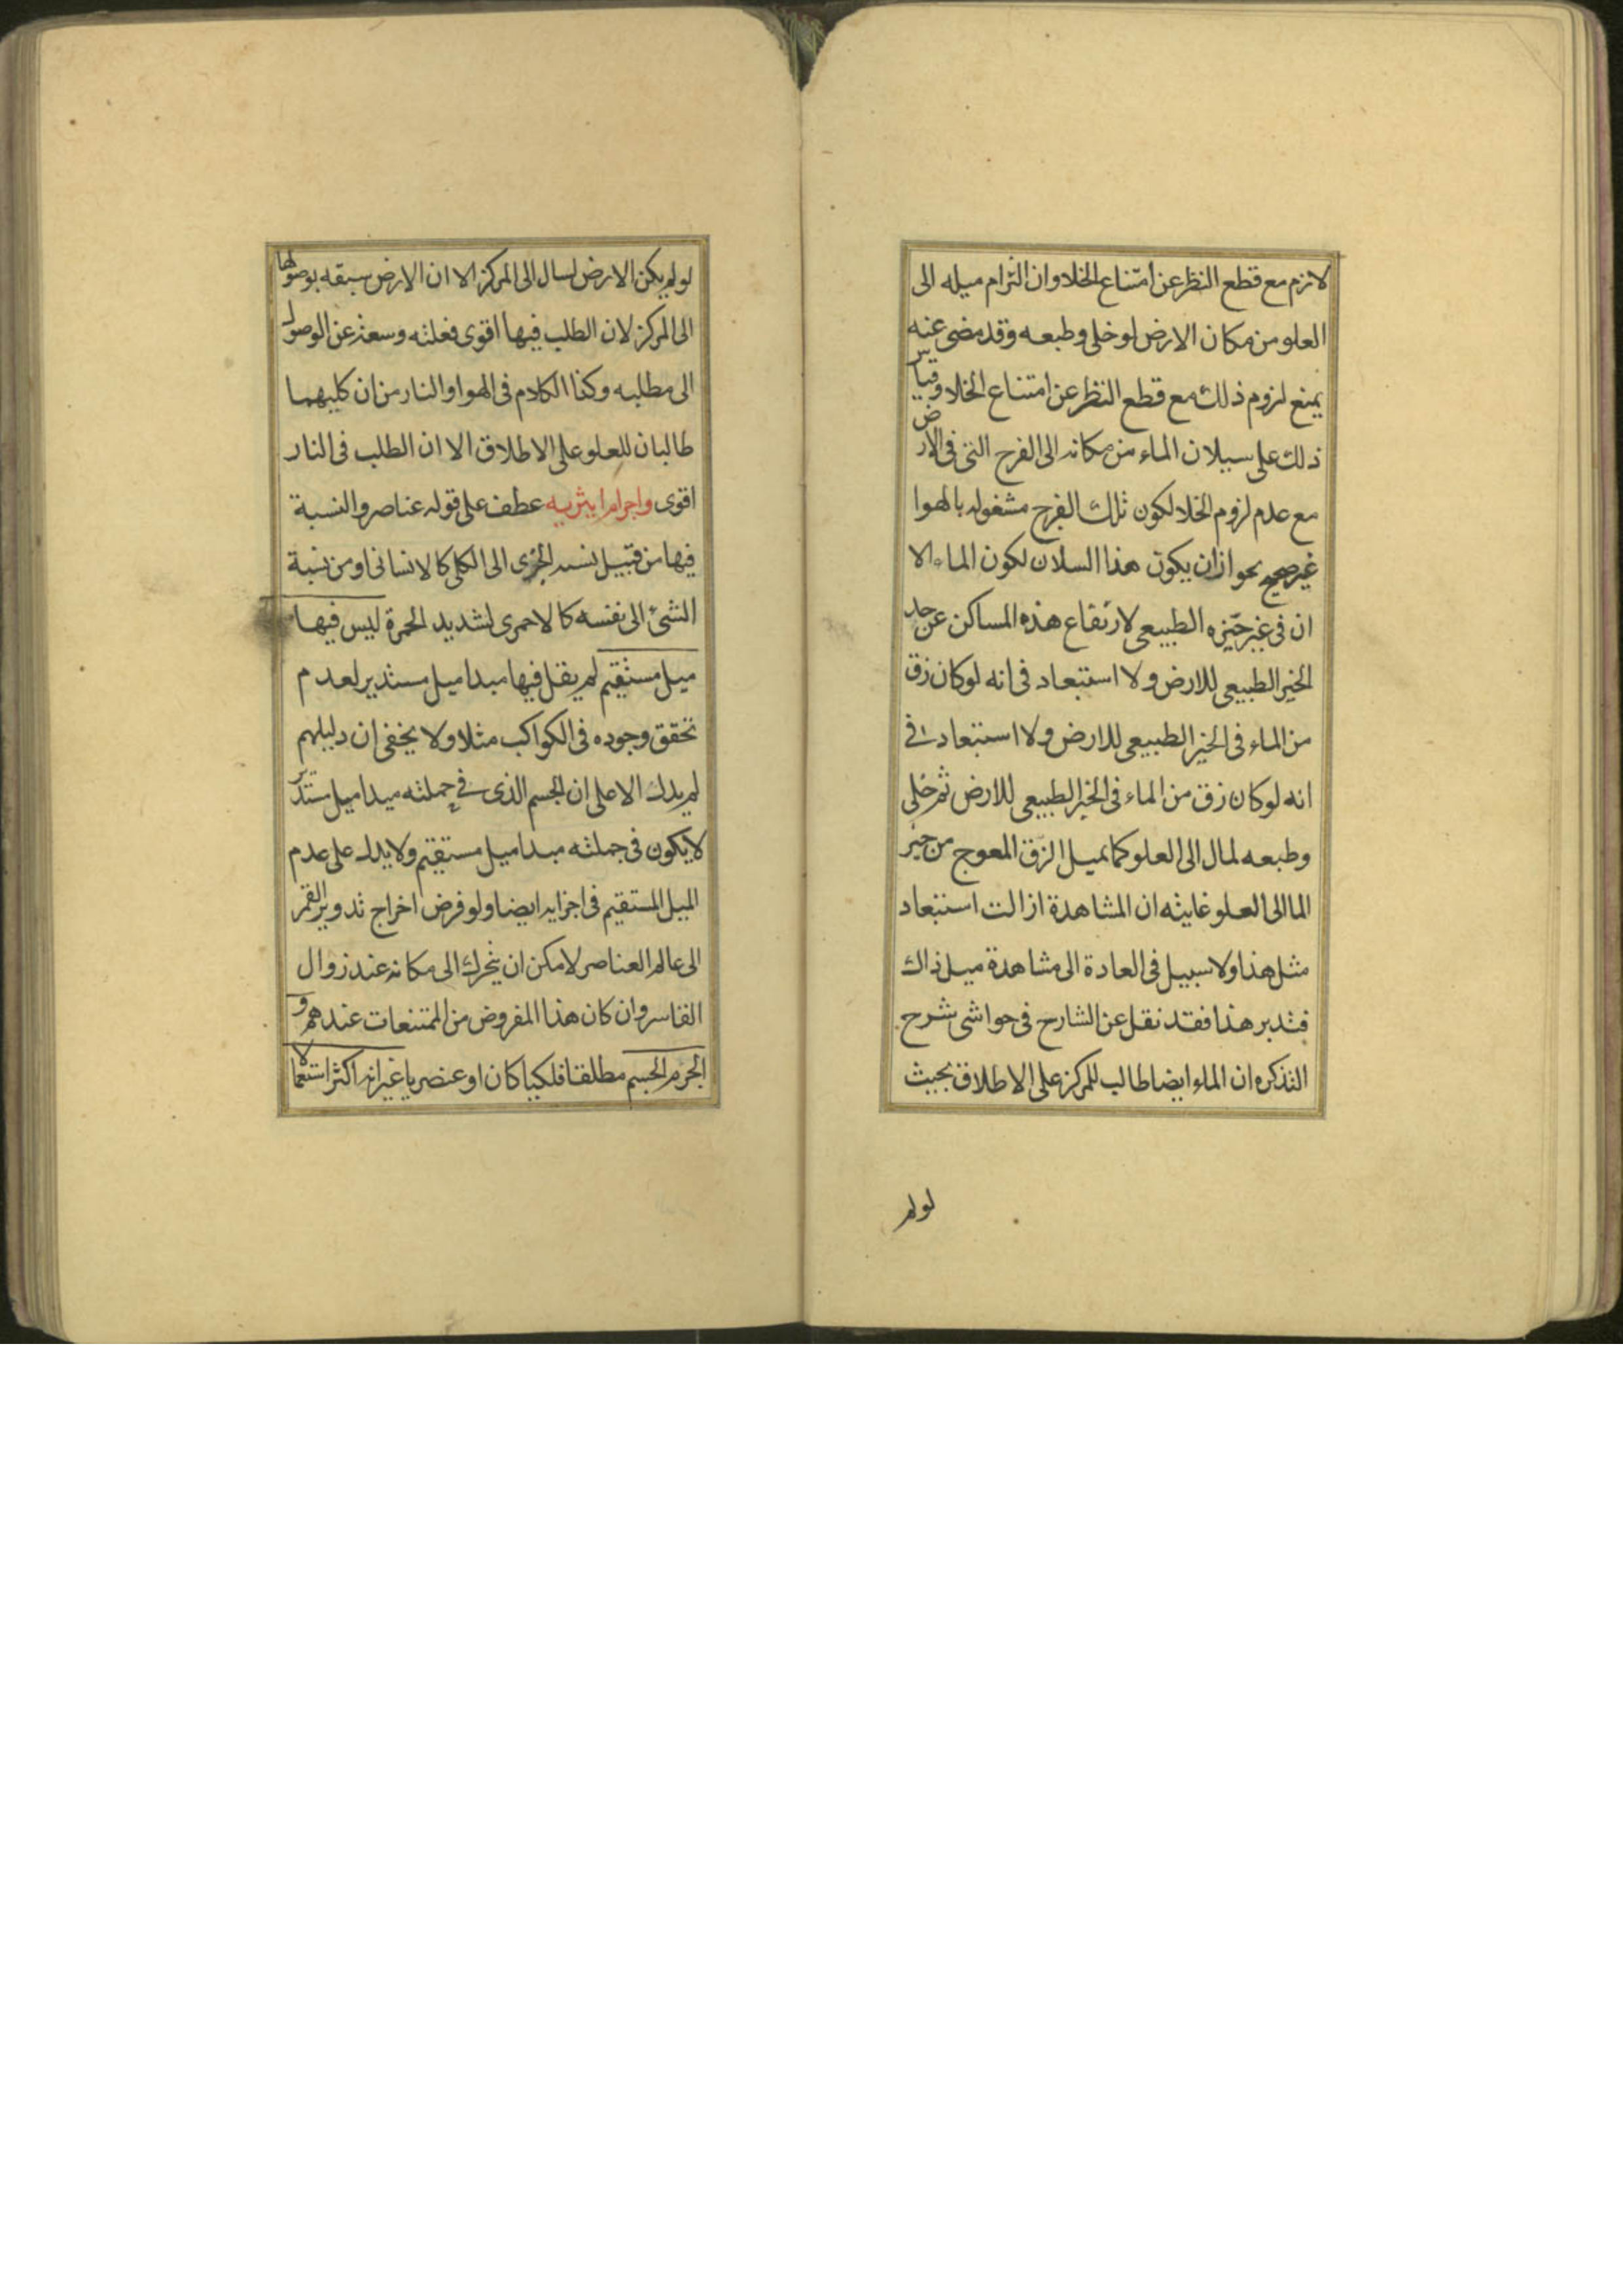 لازم مع قطع النظر عن امتناع الخلاو ان التزام ميله الى
العلو من مكان الارض لو خلى وطبعه وقد مضى عنه
يمنع لزوم ذلك مع قطع النظر عن امتناع الخلا وقياس
ذلك على سيلان الماء من مكانه الى الفرج التى فى الارض
مع عدم لزوم الخلا لكون تلك الفرج مشغوله بالهوا
غير صحيح بحواز ان يكون هذا السلان لكون الماء الا
ان فى غير حيّزه الطبيعى لارتفاع هذه المساكن عن حد
الحيز الطبيعى للارض ولا استبعاد فى انه لو كان زق
من الماء فى الحيز الطبيعى للارض ولا استبعاد فى
انه لو كان زق من الماء فى الحيز الطبيعى للارض ثم خلى
وطبعه لمال الى العلو كما يميل الزق المعوج من حيز
الما الى العلو غايته ان المشاهدة ازالت استبعاد
مثل هذا ولا سبيل فى العادة الى مشاهدة ميل ذاك
فتدبر هذا فقد نقل عن الشارح فى حواشى شرح
التذكره ان الماء ايضا طالب للمركز على الاطلاق بحيث
لو لم
لو لم يكن الارض لسال الى المركز الا ان الارض سبقه بوصولها
الى المركز لان الطلب فيها اقوى فغلبته وسعته عن الوصول
الى مطلبه وكذا الكلام فى الهوا والنار من ان كليهما
طالبان للعلو على الاطلاق الا ان الطلب فى النار
اقوى واجرام ايثريه عطف على قوله عناصر والنسبة
فيها من قبيل نسبه الجزى الى الكلى كالانسانى او من نسبة
الشئ الى نفسه كالاحمرى لشديد الحمرة ليس فيها
ميل مستقيم لم يقل فيها مبدا ميل مستدير لعدم
تحقق وجوده فى الكواكب مثلا ولا يخفى ان دليلهم
لم يدل الا على ان الجسم الذى فى جملته مبدا ميل مستدير
لا يكون فى جملته مبدا ميل مستقيم ولا يدل على عدم
الميل المستقيم فى اجزايه ايضا ولو فرض اخراج تدوير القمر
الى عالم العناصر لامكن ان يتحرك الى مكانه عند زوال
القاسر وان كان هذا المفروض من الممتنعات عندهم و
الجرم الجسم مطلقا فلكيا كان او عنصريا غير انه اكثر استعمالا